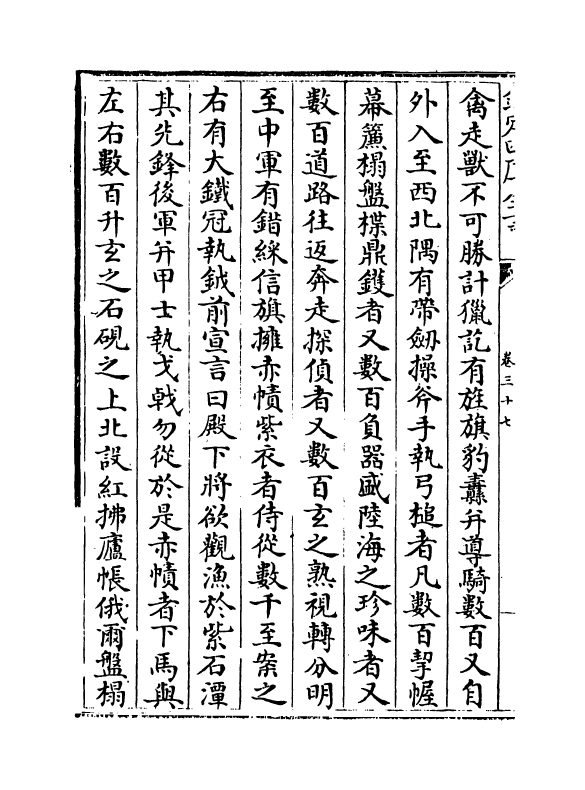 欽定四庫全書
卷三十七
禽走獸不可勝計獵訖有旌旗豹纛幷導騎數百又自
外入至西北隅有帶劒操斧手執弓槌者凡數百挈幄
幕簾榻盤楪鼎鑊者又數百負器盛陸海之珍味者又
數百道路往返奔走探偵者又數百玄之熟視轉分明
至中軍有錯綵信旗擁赤幘紫衣者侍從數千至案之
右有大鐵冠執鉞前宣言曰殿下將欲觀漁於紫石潭
其先鋒後軍幷甲士執戈戟勿從於是赤幘者下馬與
左右數百升玄之石硯之上北設紅拂廬帳俄爾盤榻